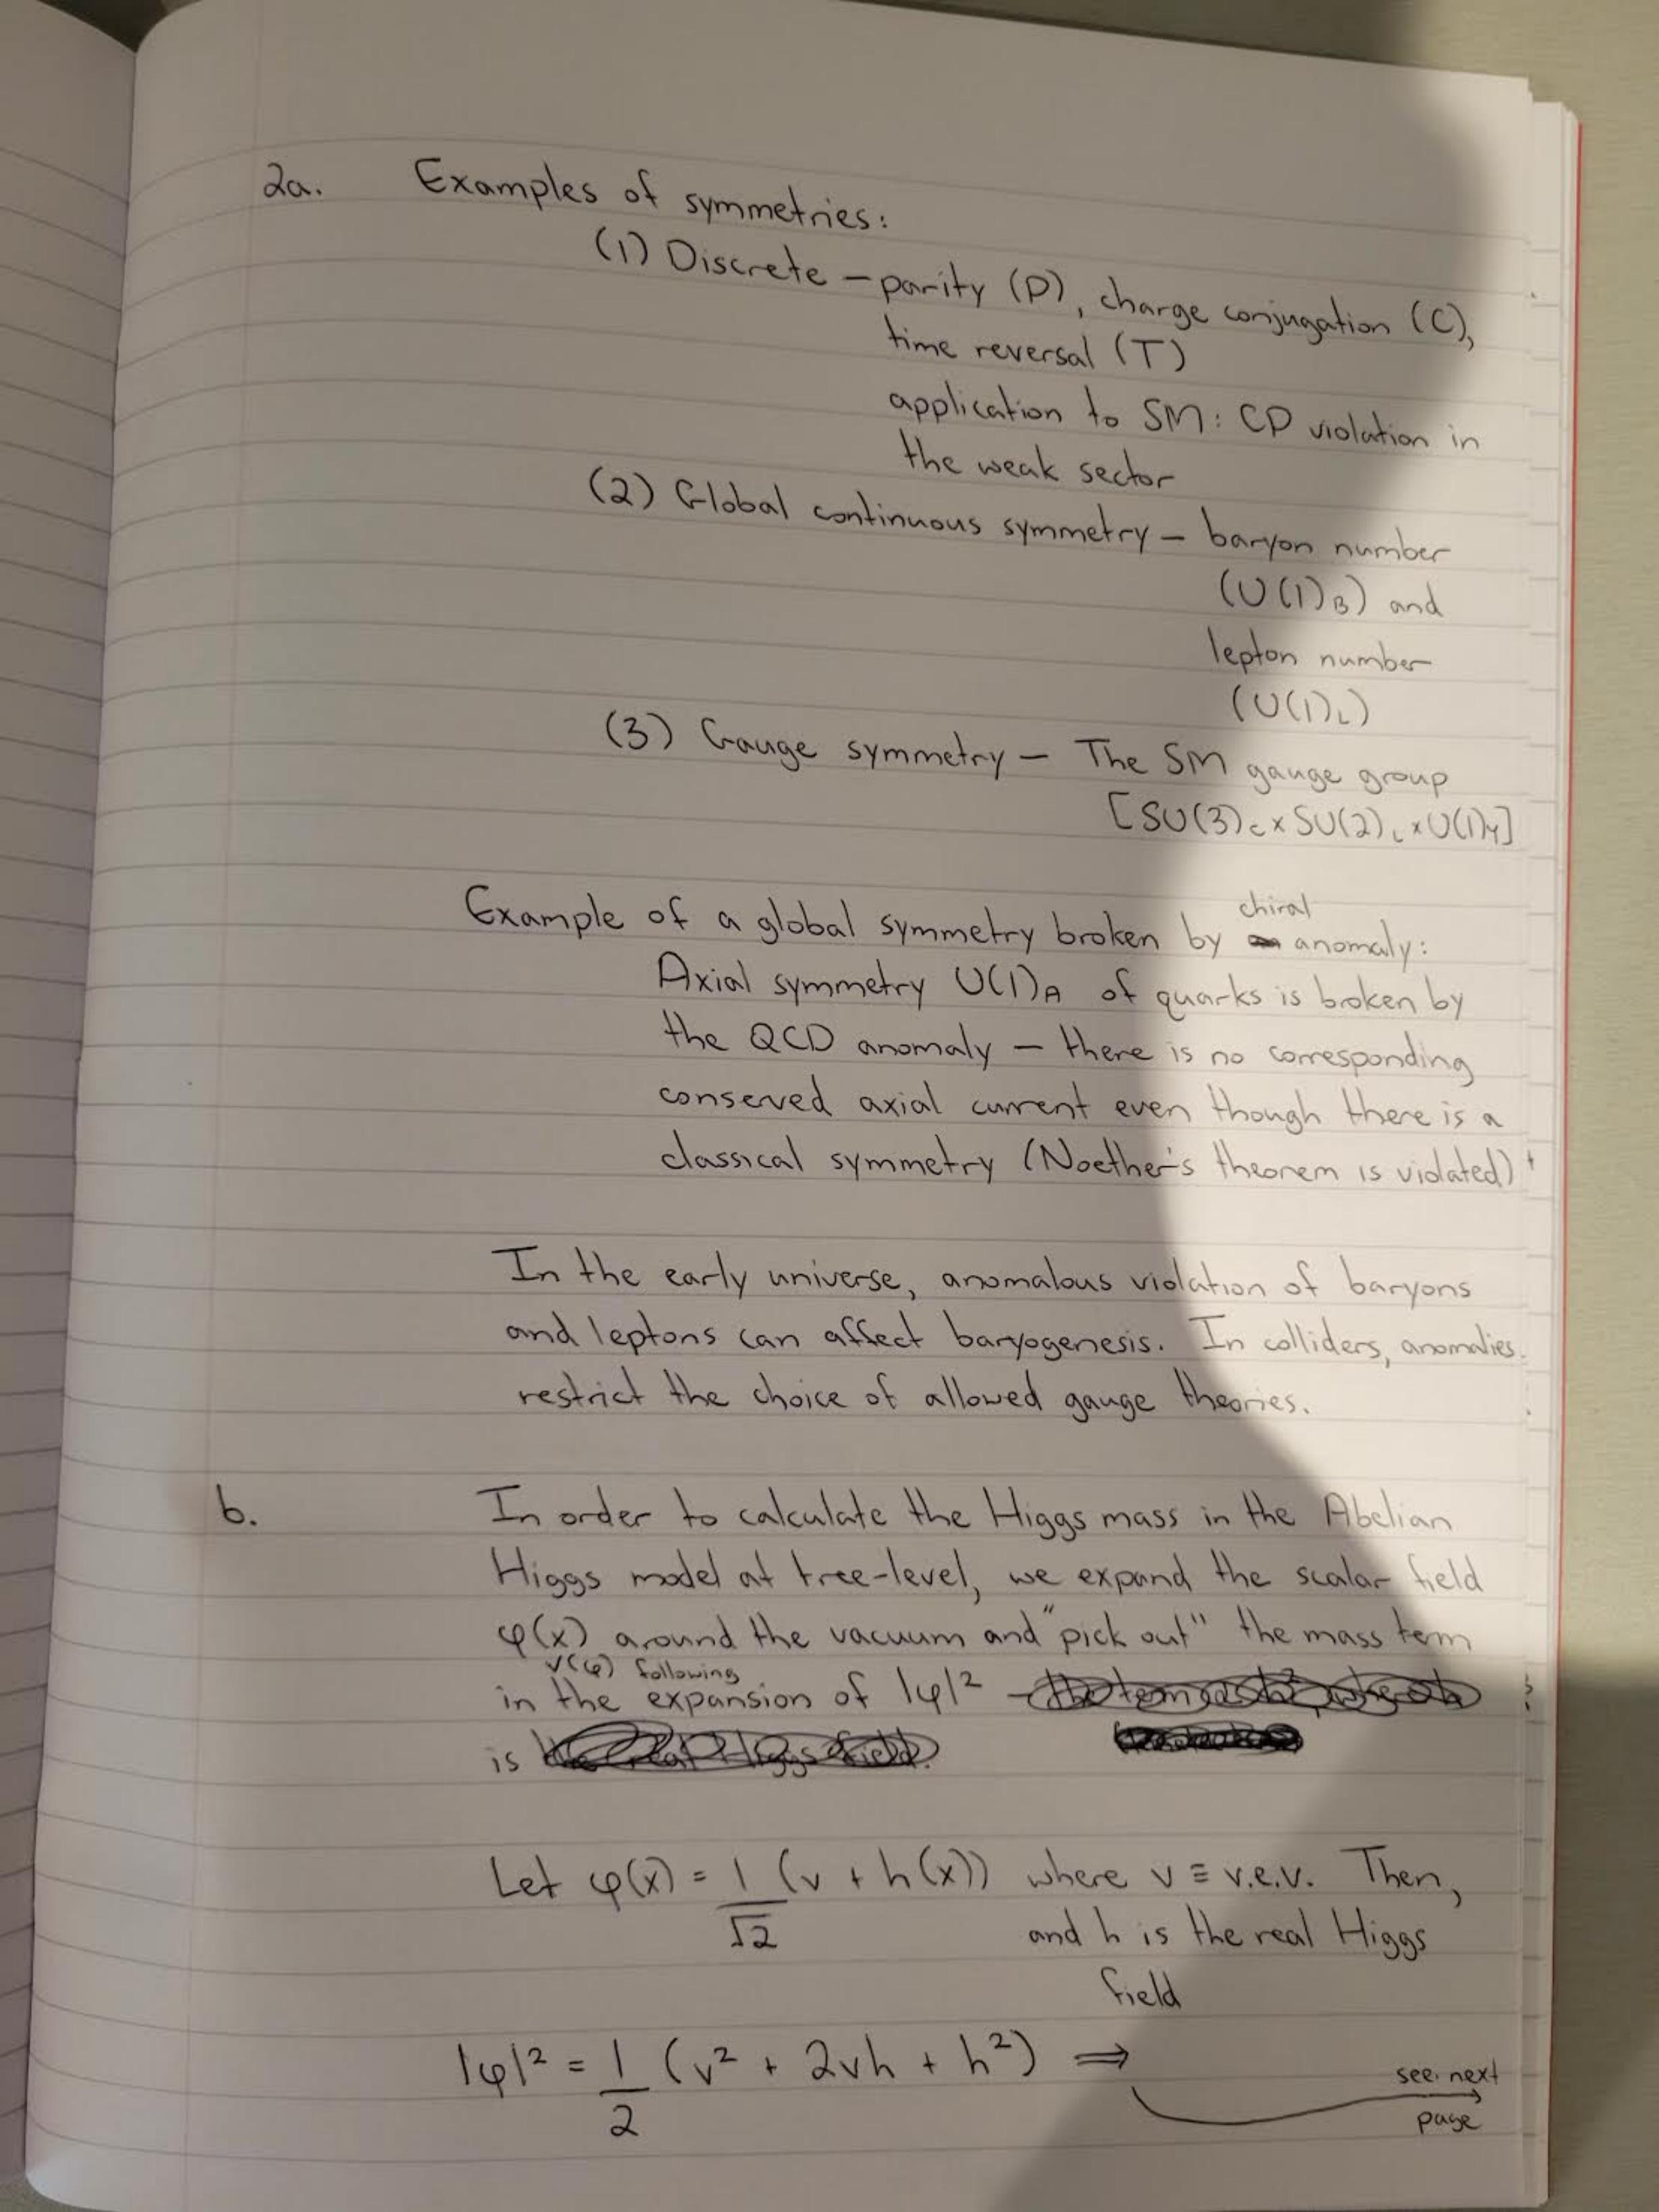 2a. Examples of symmetries:
(1) Discrete – parity (P), charge conjugation (C),
time reversal (T)
application to SM: CP violation in
the weak sector
(2) Global continuous symmetry – baryon number
(U(1)_B) and
lepton number
(U(1)_L)
(3) Gauge symmetry – The SM gauge group
[SU(3)_c × SU(2)_L × U(1)_Y]
Example of a global symmetry broken by chiral anomaly:
Axial symmetry U(1)_A of quarks is broken by
the QCD anomaly – there is no corresponding
conserved axial current even though there is a
classical symmetry (Noether's theorem is violated)
In the early universe, anomalous violation of baryons
and leptons can affect baryogenesis. In colliders, anomalies
restrict the choice of allowed gauge theories.
b. In order to calculate the Higgs mass in the Abelian
Higgs model at tree-level, we expand the scalar field
φ(x) around the vacuum and "pick out" the mass term
V(φ) following
in the expansion of |φ|²
is
Let φ(x) = 1/√2 (v + h(x)) where v ≡ v.e.v. Then,
and h is the real Higgs
field
|φ|² = 1/2 (v² + 2vh + h²) ⇒
see next
page